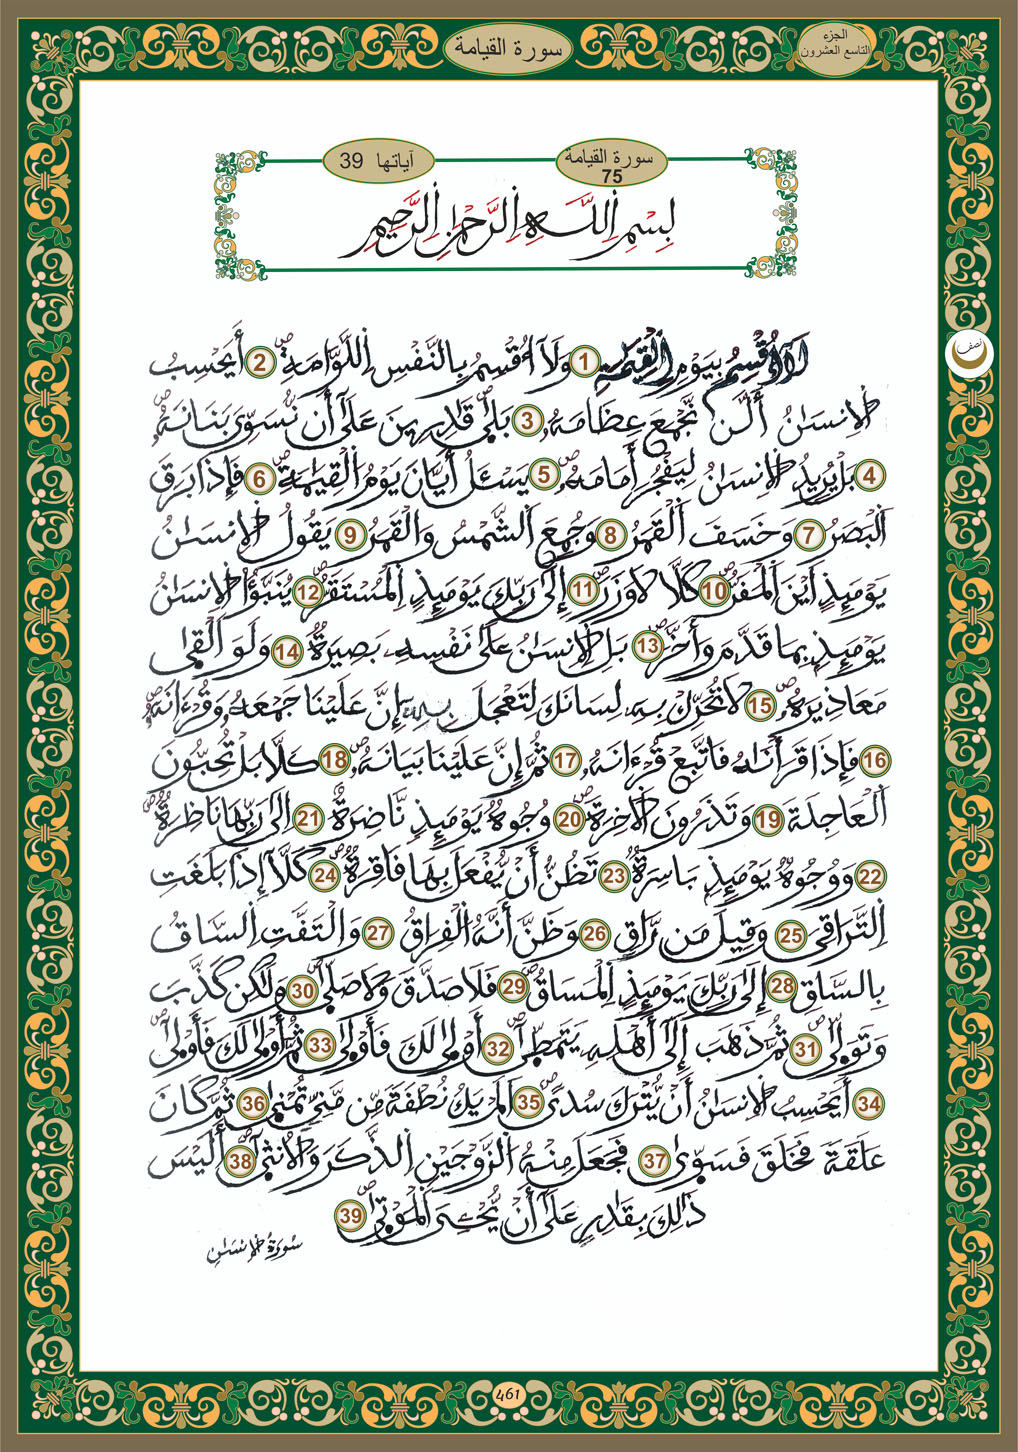 الجزء
التاسع العشرون
سورة القيامة
سورة القيامة
75
آياتها 39
بِسْمِ اِللَّهِ اِلرَّحْمَٰنِ اِلرَّحِيمِ
لَآ أُقْسِمُ بِيَوْمِ اِلْقِيَٰمَةِ 1 وَلَآ أُقْسِمُ بِالنَّفْسِ اِللَّوَّامَةِ 2 أَيَحْسِبُ
نصف
اُلْإِنسَٰنُ أَلَّن نَّجْمَعَ عِظَامَهُۥ 3 بَلَىٰ قَٰدِرِينَ عَلَىٰٓ أَن نُّسَوِّىَ بَنَانَهُۥ
4 بَلْ يُرِيدُ اُلْإِنسَٰنُ لِيَفْجُرَ أَمَامَهُۥ 5 يَسْـَٔلُ أَيَّانَ يَوْمُ اُلْقِيَٰمَةِ 6 فَإِذَا بَرَقَ
اَلْبَصَرُ 7 وَخَسَفَ اَلْقَمَرُ 8 وَجُمِعَ اَلشَّمْسُ وَالْقَمَرُ 9 يَقُولُ اُلْإِنسَٰنُ
يَوْمَئِذٍ اَيْنَ اَلْمَفَرُّ 10 كَلَّا لَا وَزَرَ 11 إِلَىٰ رَبِّكَ يَوْمَئِذٍ اِلْمُسْتَقَرُّ 12 يُنَبَّؤُا اُلْإِنسَٰنُ
يَوْمَئِذٍ بِمَا قَدَّمَ وَأَخَّرَ 13 بَلِ اِلْإِنسَٰنُ عَلَىٰ نَفْسِهِۦ بَصِيرَةٌ 14 وَلَوَ اَلْقَىٰ
مَعَاذِيرَهُۥ 15 لَا تُحَرِّكْ بِهِۦ لِسَانَكَ لِتَعْجَلَ بِهِۦٓ إِنَّ عَلَيْنَا جَمْعَهُۥ وَقُرْءَانَهُۥ
16 فَإِذَا قَرَأْنَٰهُ فَاتَّبِعْ قُرْءَانَهُۥ 17 ثُمَّ إِنَّ عَلَيْنَا بَيَانَهُۥ 18 كَلَّا بَلْ تُحِبُّونَ
اَلْعَاجِلَةَ 19 وَتَذَرُونَ اَلْأٓخِرَةَ 20 وُجُوهٌ يَوْمَئِذٍ نَّاضِرَةٌ 21 اِلَىٰ رَبِّهَا نَاظِرَةٌ
22 وَوُجُوهٌ يَوْمَئِذٍ بَاسِرَةٌ 23 تَظُنُّ أَنْ يُّفْعَلَ بِهَا فَاقِرَةٌ 24 كَلَّآ إِذَا بَلَغَتِ
اِلتَّرَاقِىَ 25 وَقِيلَ مَن رَّاقٍ 26 وَظَنَّ أَنَّهُ اُلْفِرَاقُ 27 وَالْتَفَّتِ اِلسَّاقُ
بِالسَّاقِ 28 إِلَىٰ رَبِّكَ يَوْمَئِذٍ اِلْمَسَاقُ 29 فَلَا صَدَّقَ وَلَا صَلَّىٰ 30 وَلَٰكِن كَذَّبَ
وَتَوَلَّىٰ 31 ثُمَّ ذَهَبَ إِلَىٰٓ أَهْلِهِۦ يَتَمَطَّىٰٓ 32 أَوْلَىٰ لَكَ فَأَوْلَىٰ 33 ثُمَّ أَوْلَىٰ لَكَ فَأَوْلَىٰٓ
34 أَيَحْسِبُ اُلْإِنسَٰنُ أَنْ يُّتْرَكَ سُدىً 35 اَلَمْ يَكُ نُطْفَةً مِّن مَّنِىٍّ تُمْنَىٰ 36 ثُمَّ كَانَ
عَلَقَةً فَخَلَقَ فَسَوَّىٰ 37 فَجَعَلَ مِنْهُ اُلزَّوْجَيْنِ اِلذَّكَرَ وَالْأُنثَىٰٓ 38 أَلَيْسَ
ذَٰلِكَ بِقَٰدِرٍ عَلَىٰٓ أَنْ يُّحْـِۧىَ اَلْمَوْتَىٰ 39
سُورَةُ اُلْإِنسَٰنِ
461